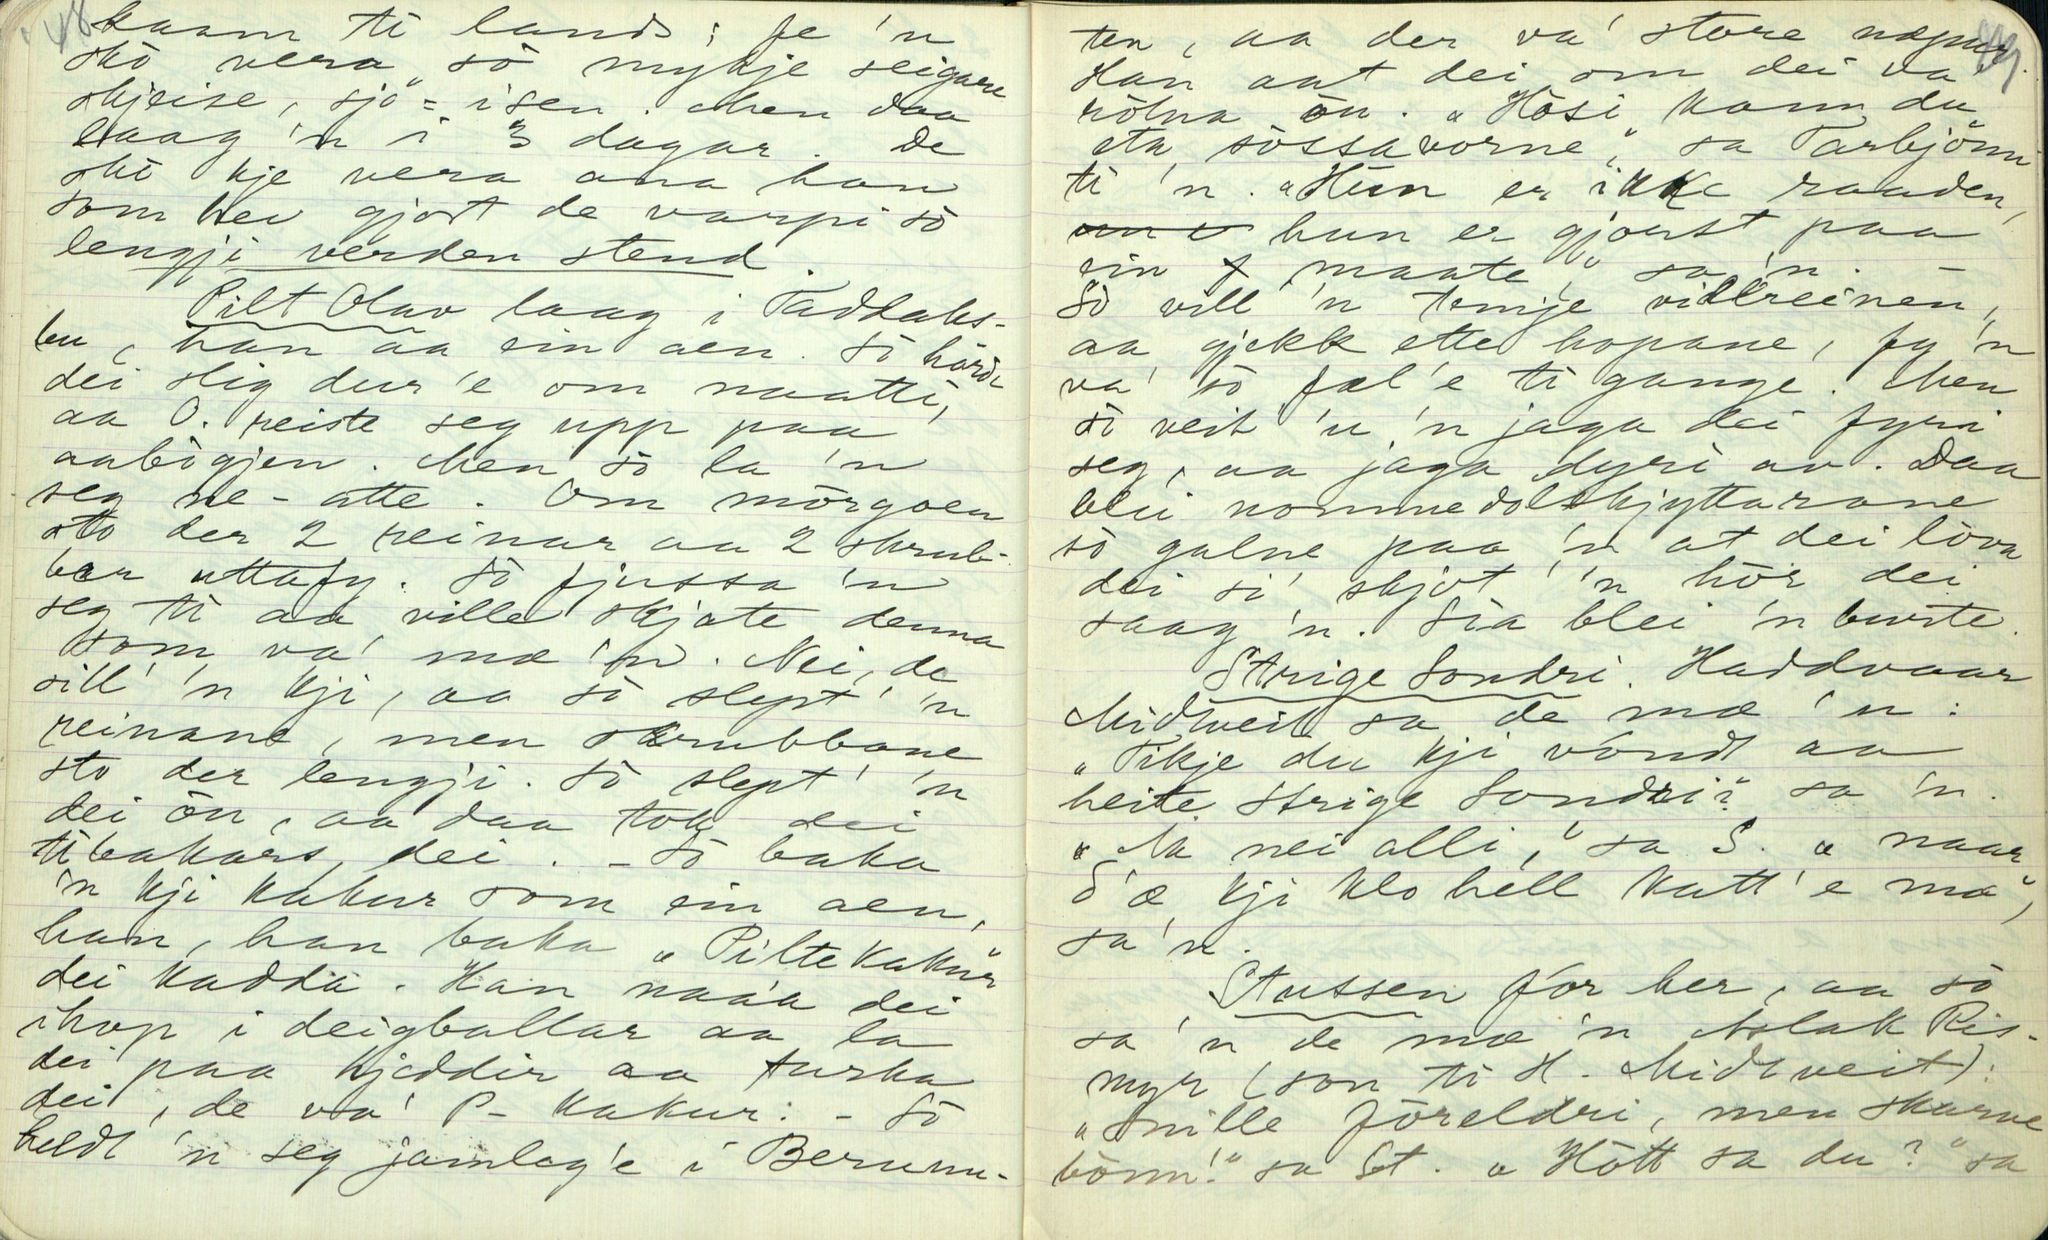 48
kaam ti lands; fe 'n
sko vera" sò mykje seigare
skjeise, sjø=isen. Men daa
laag 'n i 3 dagar. De
ski kje vera ana han
som hev gjort de varpi so
lengji verden stend.
Pilt Olav laag i Faddabs-
bu, han aa ein aen. Sò hørde
dei slig dur'e om naatti,
aa O. reiste seg upp paa
aabògjen. Men sò la 'n
seg ne-atte. Om mòrgoen
sto der 2 reinar aa 2 skrub-
bar uttafy. Sò fjussa 'n
seg ti aa ville skjote denna
som va' mæ 'n. Nei, de
sill' 'n kji, aa sò slept' 'n
reinane, men skrubbane
sto der lengji. Sò slept' 'n
dei òu, aa daa tok dei
tibakars, dei. – Sò baka
'n kji kakur som ein aen,
han, han baka „Piltekakur"
dei kadda. Han naa'a dei
ihop i deigballar aa la
dei paa kjeddir aa turka
dei, de va' P- kakur. – Sò
heldt 'n seg jamleg'e i Berunu-
49
ten, aa der va' store næpur.
Han aat dei om dei va'
ròtna òu. „Hòsi kann du
eta sòssavorne," sa Tarbjònn
ti 'n. „Hun er ikke raaden,
hun er gjørst paa
ein maate," sa 'n. –
Sò vill 'n temje villreinen,
aa gjekk ette hopane, fy 'n
va' sò fæl'e ti gange. Men
sò veit 'u 'n jaga dei fyri
seg, aa jaga dyri av. Daa
blei nommedølskjyttarane
sò galne paa 'n at dei lòva
dei si' skjot' 'n hòr dei
saag 'n. Sia blei 'n burte.
Strige Sondri. Haddvaar
Midtveit sa de mæ 'n:
„Tikje du kji vóndt aa
heite Strige Sondri?" sa 'n.
„Na nei alli," sa S. „naar
d'æ kji klo hell katt'e mæ,"
sa 'n.
Stussen fór her, aa sò
sa 'n de mæ 'n Aslak Ris-
myr (son ti H. Midtveit):
„Snille fòreldri, men skarve
bònn!" sa St. „Hòtt sa du?" sa